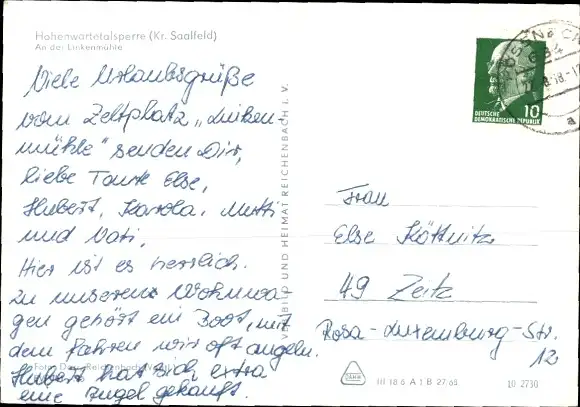 Hohenwartetalsperre (Kr. Saalfeld)
An der Linkenmühle
Viele Urlaubsgrüße
vom Zeltplatz „Linken-
mühle" senden Dir,
liebe Tante Else,
Hubert, Karola, Mutti
und Vati.
Hier ist es herrlich.
Zu unserem Wohnwa-
gen gehört ein Boot, mit
dem fahren wir oft angeln.
Hubert hat sich extra
eine Angel gekauft.
BILD UND HEIMAT REICHENBACH I. V.
10
DEUTSCHE
DEMOKRATISCHE REPUBLIK
Frau
Else Köttnitz
49 Zeitz
Rosa-Luxemburg-Str.
12
III 18 6 A 1 B 27 68
10 2730